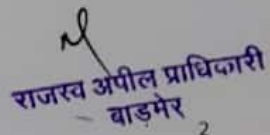 राजस्व अपील प्राधिकारी
बाड़मेर
2